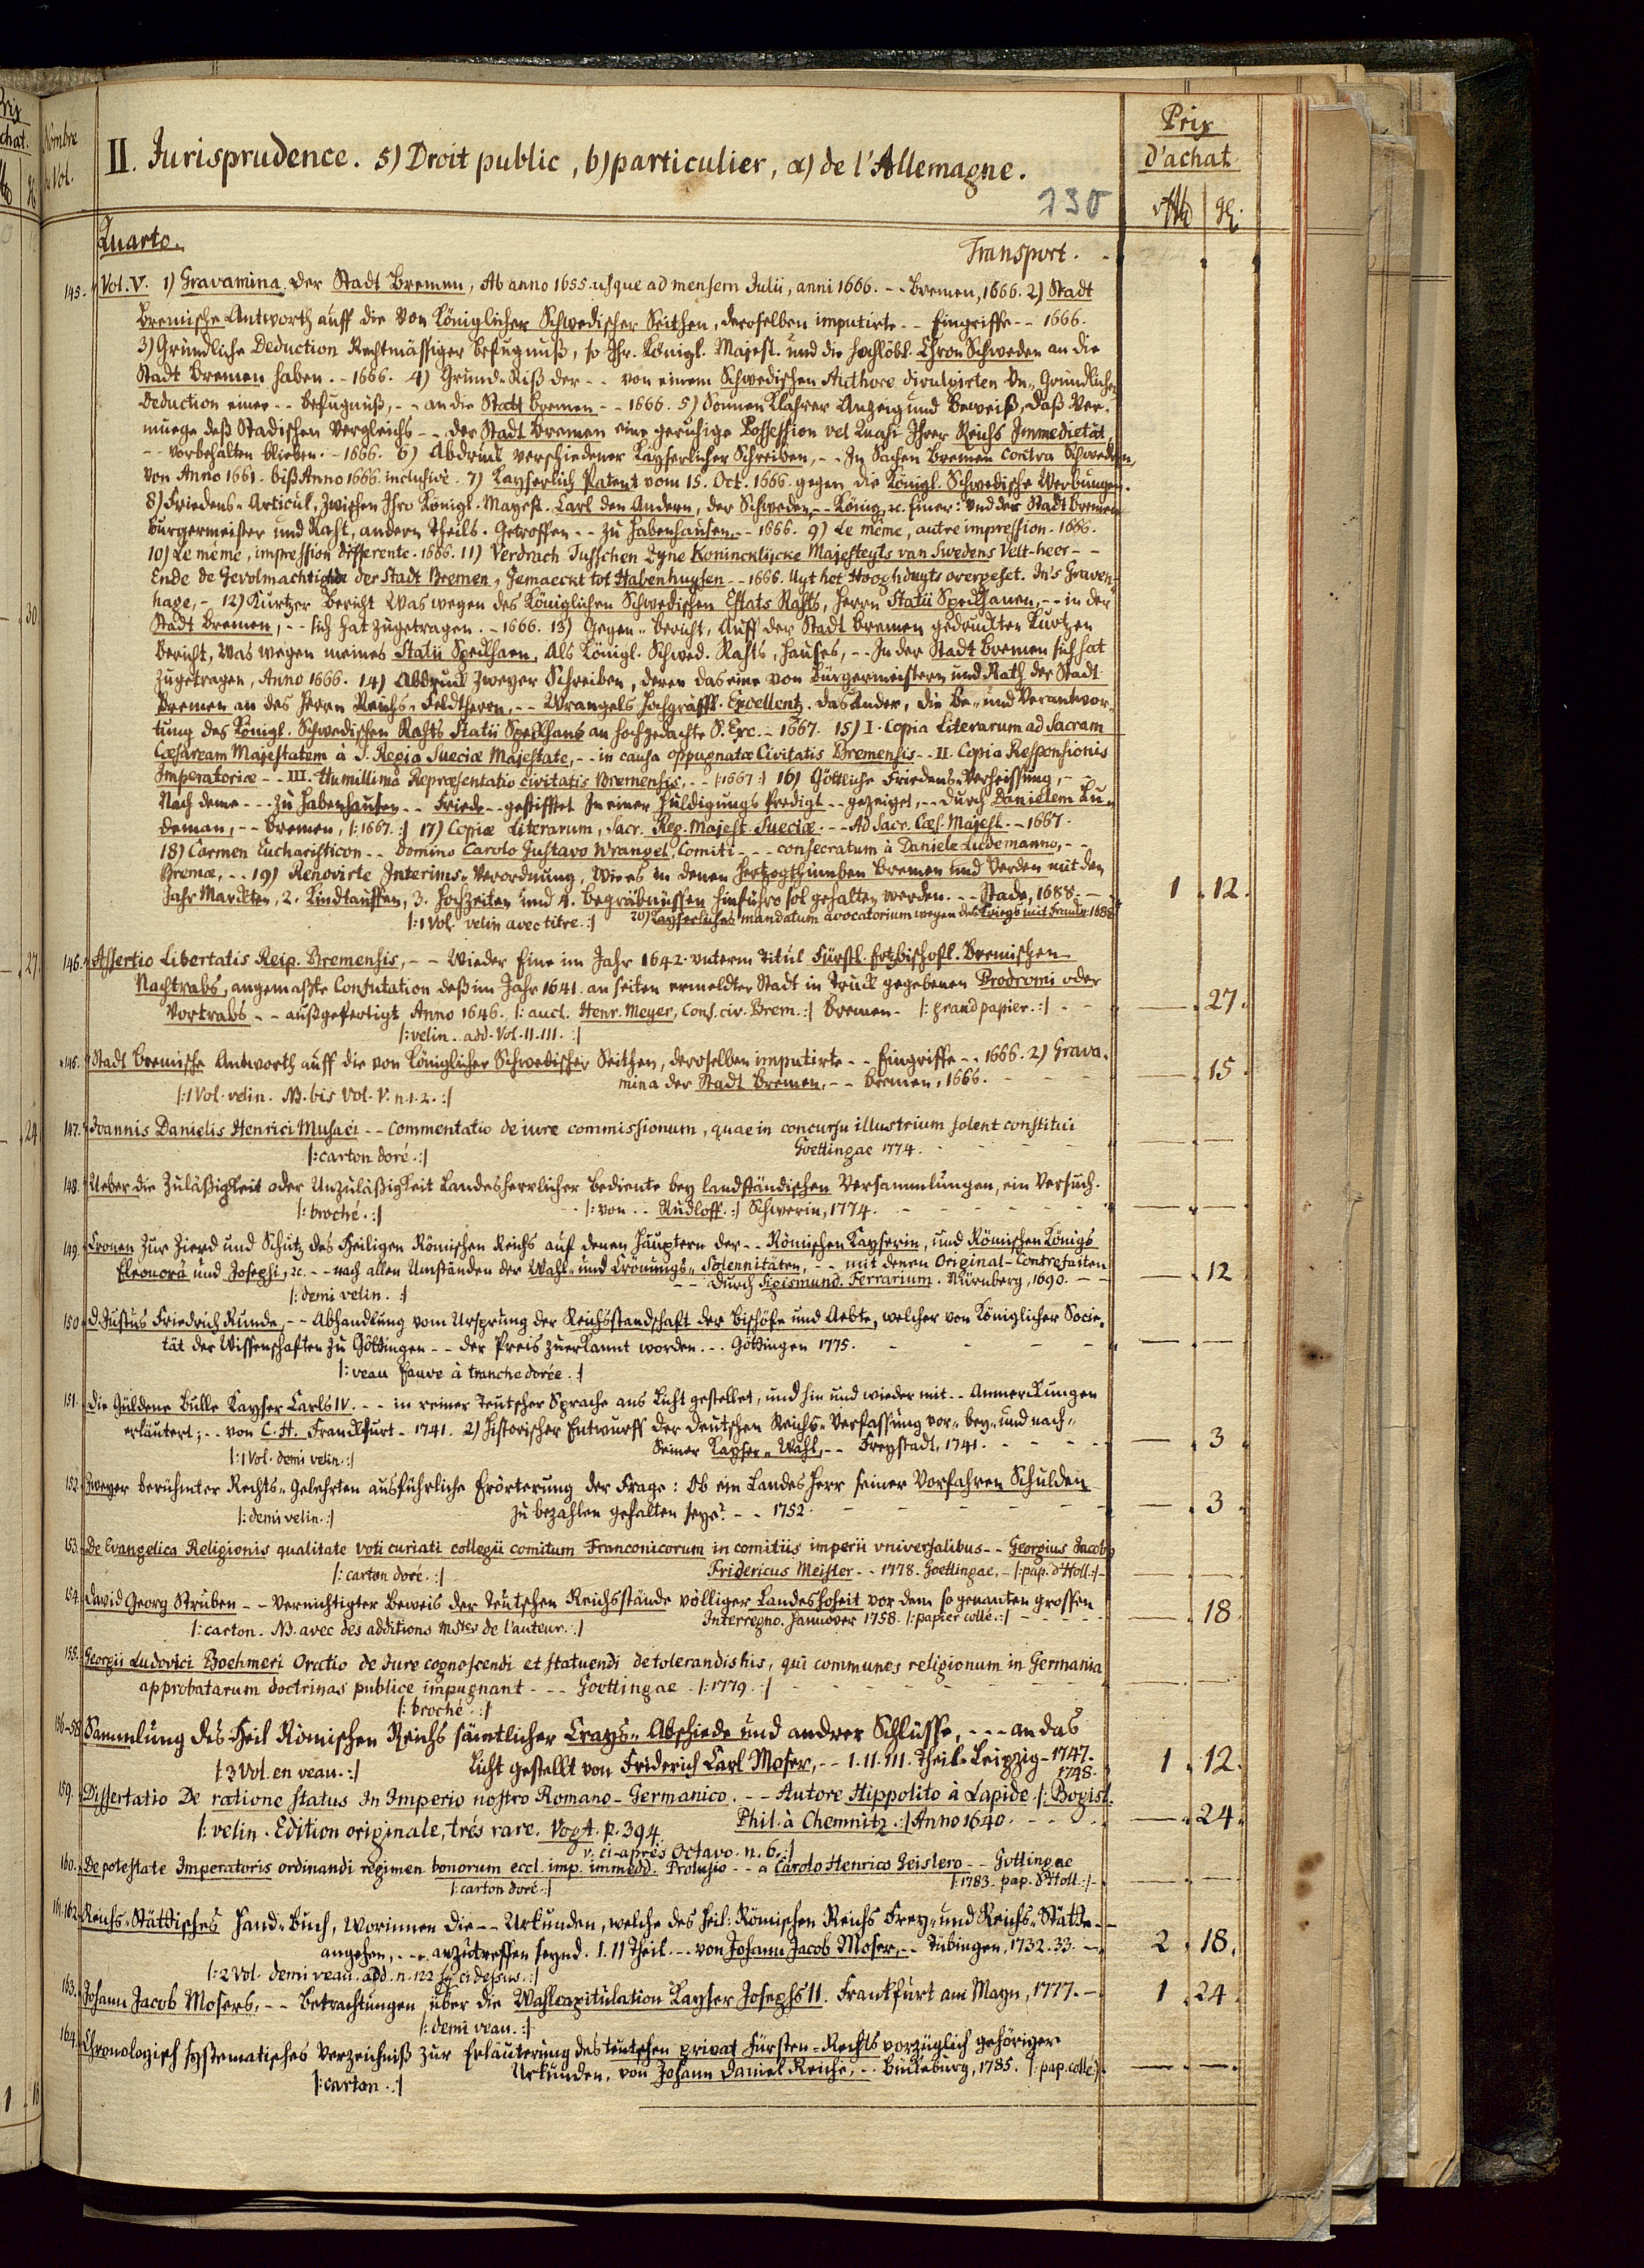 Nombre
de Vol.
II. Jurisprudence. 5) Droit public, b) particulier, α) de l'Allemagne.
130
Prix
d'achat.
Quarto.
Transport.
145. Vol. V. 1) Gravamina der Stadt Bremen, Ab anno 1655. usque ad mensem Julii, anni 1666. -- Bremen, 1666. 2) Stadt
Bremische Antworth auff die von Königlicher Schwedischer Seithen, deroselben imputirte -- Eingriffe -- 1666.
3) Gründliche Deduction Rechtmässiger Befugnuß, so Ihr. Königl. Majest. und die hochlöbl. Chron Schweden an die
Stadt Bremen haben. - 1666. 4) Grund-Riß der -- von einem Schwedischen Authore divulgirten Un-Gründlichen
Deduction einer -- Befugnuß, -- an die Statt Bremen -- 1666. 5) Sonnen Klahrer Anzeig und Beweiß, daß Ver-
muege deß Stadischen Vergleichs -- der Stadt Bremen eine geruhige Possession vel Quasi Ihrer Reichs Immedietät,
-- vorbehalten blieben. - 1666. 6) Abdruck verschiedener Kayserlicher Schreiben, -- In Sachen Bremen contra Schweden,
von Anno 1661. biß Anno 1666. inclusivè. 7) Kayserlich Patent vom 15. Oct. 1666. gegen die Königl. Schwedische Werbungen.
8) Friedens-Articul, zwischen Ihro Königl. Mayest. Carl den Andern, der Schweden -- König, &c. Einer: Und der Stadt Bremen
Burgermeister und Raht, andern Theils. Getroffen -- zu Habenhausen, -- 1666. 9) Le même, autre impression. 1666.
10) Le même, impression differente. 1666. 11) Verdrach Tusschen Zyne Konincklijcke Majesteyts van Swedens Velt-heer --
Ende de Gevolmachtighde der Stadt Bremen, Gemaeckt tot Habenhuysen -- 1666. Uyt het Hooghduyts overgeset. In's Graven-
hage, - 12) Kurtzer Bericht Was wegen des Königlichen Schwedischen Estats Rahts, Herrn Statii Speckhanen, -- in der
Stadt Bremen, -- sich hat zugetragen. - 1666. 13) Gegen-Bericht, Auff der Stadt Bremen gedruckten Kurtzen
Bericht, Was wegen meines Statii Speckhaen, Als Königl. Schwed. Rahts, Hauses, -- In der Stadt Bremen sich hat
zugetragen, Anno 1666. 14) Abdruck zweyer Schreiben, deren das eine von Bürgermeistern und Rath der Stadt
Bremen an des Herrn Reichs-Feldtherrn, -- Wrangels Hochgräfff. Excellentz. Das Ander, die Be- und Verantwor-
tung des Königl. Schwedischen Rahts Statii Speckhans an hochgedachte S. Exc. - 1667. 15) I. Copia Literarum ad Sacram
Cæsaream Majestatem à S. Regia Sueciæ Majestate, -- in causa oppugnatæ Civitatis Bremensis -- II. Copia Responsionis
Imperatoriæ -- III. Humillima Repræsentatio civitatis Bremensis, -- |: 1667 :| 16) Göttliche Friedens-Verheissung, -
Nach deme -- zu Habenhausen -- Friede -- gestifftet In einer Huldigungs Predigt -- gezeiget, -- durch Danielem Lü-
deman, -- Bremen, |: 1667. :| 17) Copiæ Literarum, Sacr. Reg. Majest. Sueciæ. -- Ad Sacr. Cæs. Majest. - 1667.
18) Carmen Eucharisticon -- Domino Carolo Gustavo Wrangel, Comiti -- consecratum à Daniele Ludemanno, --
Bremæ, -- 19) Renovirte Interims-Verordnung, Wie es in denen Hertzogthümben Bremen und Verden mit den
Jahr Marckten, 2. Kindtauffen, 3. Hochzeiten und 4. Begräbnüssen hinführo sol gehalten werden. -- Stade, 1688. - 1 . 12.
|: 1 Vol. velin avec titre. :| 20) Kayserliches mandatum avocatorium wegen des Kriegs mit Franckr. 1688.
146. Assertio Libertatis Reip. Bremensis, -- Wieder Eine im Jahr 1642. unterm Titul Fürstl. Ertzbischofl. Bremischen
Nachtrabs, angemaßte Confutation deß im Jahr 1641. an seiten ermeldter Stadt in Truck gegebenen Prodromi oder
Vortrabs -- außgefertigt Anno 1646. |: auct. Henr. Meyer, Cons. civ. Brem. :| Bremen - |: grand papier. :| - — . 27.
|: velin. add. Vol. II. III. :|
146. Stadt Bremische Antworth auff die von Königlicher Schwedischer Seithen, deroselben imputirte -- Eingriffe -- 1666. 2) Grava-
mina der Stadt Bremen, -- Bremen, 1666. — . 15.
|: 1 Vol. velin. NB. bis Vol. V. n. 1. 2. :|
147. Ioannis Danielis Henrici Musaei -- Commentatio de iure commissionum, quae in concursu illustrium solent constitui
|: carton doré. :| Goettingae 1774. — . —
148. Ueber die Zuläßigkeit oder Unzuläßigkeit Landesherrlicher Bediente bey landständischen Versammlungen, ein Versuch.
|: broché. :| |: von -- Rudloff. :| Schwerin, 1774. — . —
149. Cronen zur Zierd und Schutz des Heiligen Römischen Reichs auf denen Häuptern der -- Römischen Kayserin, und Römischen Königs
Eleonora und Josephi, &c. -- nach allen Umständen der Wahl- und Crönungs-Solennitäten, -- mit denen Original-Contrefaiten
-- durch Sigismund. Ferrarium. Nürnberg, 1690. — . 12
|: demi velin. :|
150. D. Justus Friedrich Runde, -- Abhandlung vom Ursprung der Reichsstandschaft der Bischöfe und Aebte, welcher von Königlicher Socie-
tät der Wissenschaften zu Göttingen -- der Preis zuerkannt worden. -- Göttingen 1775. — . —
|: veau fauve à tranche dorée. :|
151. Die Güldene Bulle Kayser Carls IV. -- in reiner Teutscher Sprache ans Licht gestellet, und hin und wieder mit -- Anmerckungen
erläutert; -- von C. H. Franckfurt - 1741. 2) Historischer Entwurff der deutschen Reichs-Verfassung vor- bey- und nach-
Seiner Kayser-Wahl, -- Freystadt, 1741. — . 3.
|: 1 Vol. demi velin. :|
152. Zweyer berühmter Rechts-Gelehrten ausführliche Erörterung der Frage: Ob ein Landes Herr seiner Vorfahren Schulden
|: demi velin. :| zu bezahlen gehalten seye? -- 1752. — . 3.
153. De Evangelica Religionis qualitate voti curiati collegii comitum Franconicorum in comitiis imperii vniversalibus -- Georgius Jacobus
|: carton doré. :| Fridericus Meister -- 1778. Goettingae, - |: pap. d'Holl. :| — . —
154. David Georg Struben -- Vernichtigter Beweis der Teutschen Reichsstände völliger Landeshoheit vor dem so genanten grossen
|: carton. NB. avec des additions Mstes de l'auteur. :| Interregno. Hannover 1758. |: papier collé. :| — . 18.
155. Georgii Ludovici Boehmeri Oratio de Jure cognoscendi et statuendi de tolerandis his, qui communes religionum in Germania
approbatarum doctrinas publice impugnant -- Goettingae. |: 1779. :| — . —
|: broché. :|
156-58. Sammlung des Heil Römischen Reichs sämtlicher Crays-Abschiede und andrer Schlüsse, --- an das
|: 3 Vol. en veau. :| Licht gestellt von Friderich Carl Moser, -- I. II. III. Theil. Leipzig - 1747. 1 . 12.
1748.
159. Dissertatio De ratione status In Imperio nostro Romano-Germanico. -- Autore Hippolito à Lapide |: Bogisl.
|: velin. Edition originale, trés rare. Vogt. p. 394. Phil. à Chemnitz. :| Anno 1640. — . 24.
v. ci-après Octavo. n. 6. :|
160. De potestate Imperatoris ordinandi regimen bonorum eccl. imp. immedd. Prolusio -- a Carolo Henrico Geislero -- Gottingae
|: carton doré. :| |: 1783. pap. d'Holl. :| — . —
161. 162. Reichs-Stättisches Hand-Buch, Worinnen die -- Urkunden, welche des Heil: Römischen Reichs Frey- und Reichs-Stätte --
angehen, -- anzutreffen seynd. I. II Theil. -- von Johann Jacob Moser, -- Tübingen, 1732. 33. 2 . 18.
|: 2 Vol. demi veau. add. n. 122 sq ci dessus. :|
163. Johann Jacob Mosers, -- Betrachtungen über die Wahlcapitulation Kayser Josephs II. Frankfurt am Mayn, 1777. - 1 . 24.
|: demi veau. :|
164. Chronologisch systematisches Verzeichniß zur Erläuterung des teutschen privat Fürsten-Rechts vorzüglich gehöriger
Urkunden, von Johann Daniel Reiche, -- Bückeburg, 1785. |: pap. collé :| — . —
|: carton. :|